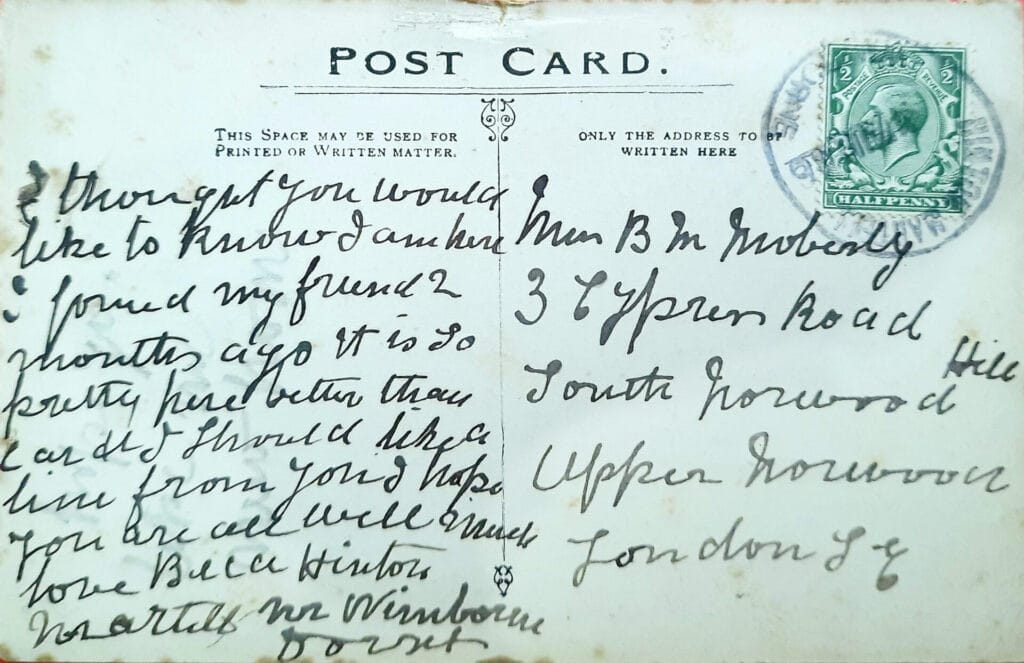 POST CARD.
THIS SPACE MAY BE USED FOR
PRINTED OR WRITTEN MATTER.
I thought you would
like to know I am here
I joined my friend 2
months ago it is so
pretty here better than
card I should like a
line from you I hope
you are all well much
love Hinton
Martell nr Wimborne
Dorset
ONLY THE ADDRESS TO BE
WRITTEN HERE
Miss B M Moberly
3 Cypress Road
Hill
South Norwood
Upper Norwood
London S E
½ ½
POSTAGE REVENUE
HALFPENNY